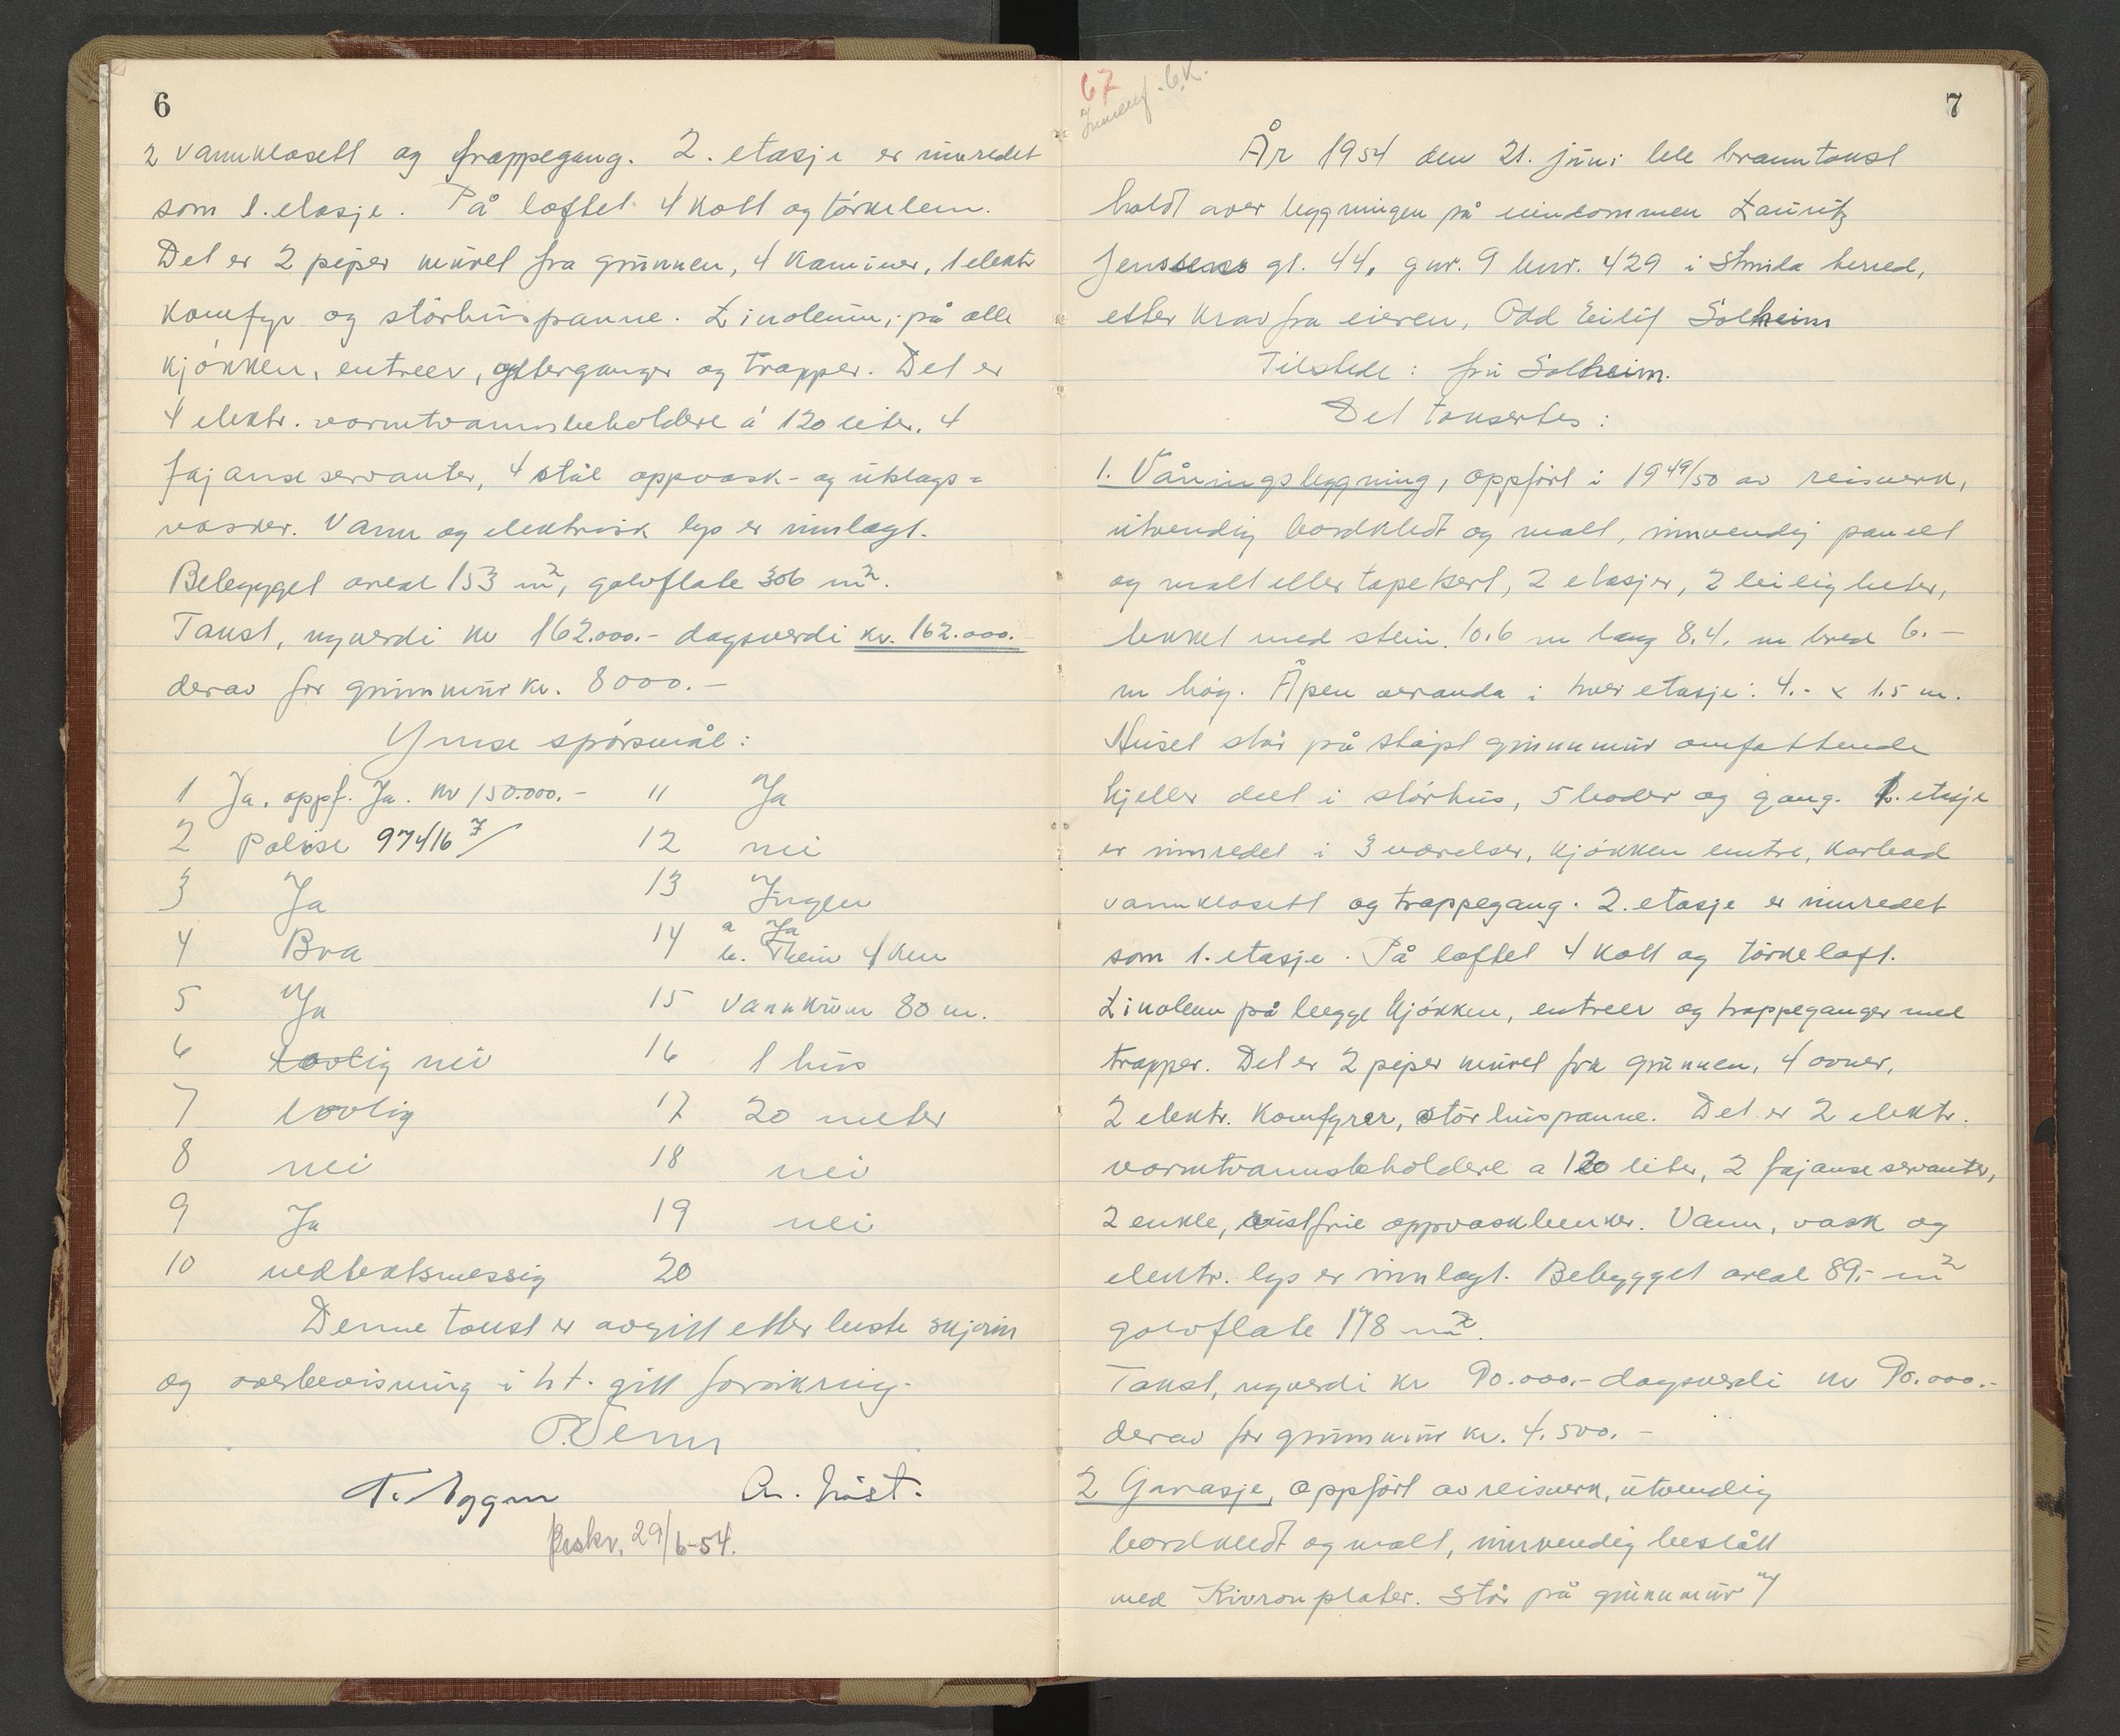 6
2 vannklosett og trappegang. 2. etasje er innredet
som 1. etasje. På loftet 4 kott og tørkelem.
Det er 2 piper muret fra grunnen, 4 kaminer, 1 elektr
komfyr og störhuspanne. Linoleum, på alle
kjøkken, entreer, ytterganger og trapper. Det er
4 elektr. varmtvannsbeholdere á 120 liter. 4
fajanse servanter, 4 stål oppvask- og utslags=
vasker. Vann og elektrisk lys er innlagt.
Bebygget areal 153 m², golvflate 306 m².
Takst, nyverdi kr 162.000.- dagsverdi kr. 162.000.
derav for grunnmur kr. 8000.-
Ymse spörsmål:
1 Ja. oppf. Ja. kr 150.000.- 11 Ja
2 Polise 97416 12 nei
3 Ja 13 Ingen
4 Bra 14 a Ja
b. 4 km
5 Ja 15 Vannkum 80 m.
6 lovlig nei 16 1 hus
7 lovlig 17 20 meter
8 nei 18 nei
9 Ja 19 nei
10 vedtektsmessig 20
Denne takst er avgitt etter beste skjønn
og overbevisning i h t. gitt forsikring.
Beskr. 29/6-54.
67
7
År 1954 den 21. juni ble branntakst
holdt over byggningen på eiendommen Lauritz
Jenssens gt. 44, gnr. 9 bnr. 429 i Strinda herred,
etter krav fra eieren, Odd Eilif Solheim
Tilstede: fru Solheim.
Det taksertes:
1. Våningsbyggning, oppfört i 1949/50 av reisverk,
utvendig bordkledt og malt, innvendig panelt
og malt eller tapetsert, 2 etasjer, 2 leiligheter,
tekket med stein. 10.6 m lang 8.4. m bred 6.-
m høy. Åpen veranda i hver etasje: 4.- x 1.5 m.
Huset står på støpt grunnmur omfattende
kjeller delt i störhus, 5 boder og gang. 1. etasje
er innredet i 3 værelser, kjøkken entre, karbad
vannklosett og trappegang. 2. etasje er innredet
som 1. etasje. På loftet 4 kott og törkeloft.
Linoleum på begge kjøkken, entreer og trappeganger med
trapper. Det er 2 piper muret fra grunnen, 4 ovner,
2 elektr. komfyrer, störhuspanne. Det er 2 elektr.
varmtvannsbeholdere a 120 liter, 2 fajanse servanter,
2 enkle, rustfrie oppvaskbenker. Vann, vask og
elektr. lys er innlagt. Bebygget areal 89,- m²
golvflate 178 m².
Takst, nyverdi kr 90.000.- dagsverdi kr 90.000.-
derav for grunnmur kr. 4.500.-
2 Garasje, oppfört av reisverk, utvendig
bordkledt og malt, innvendig beslått
med plater. Står på grunnmur